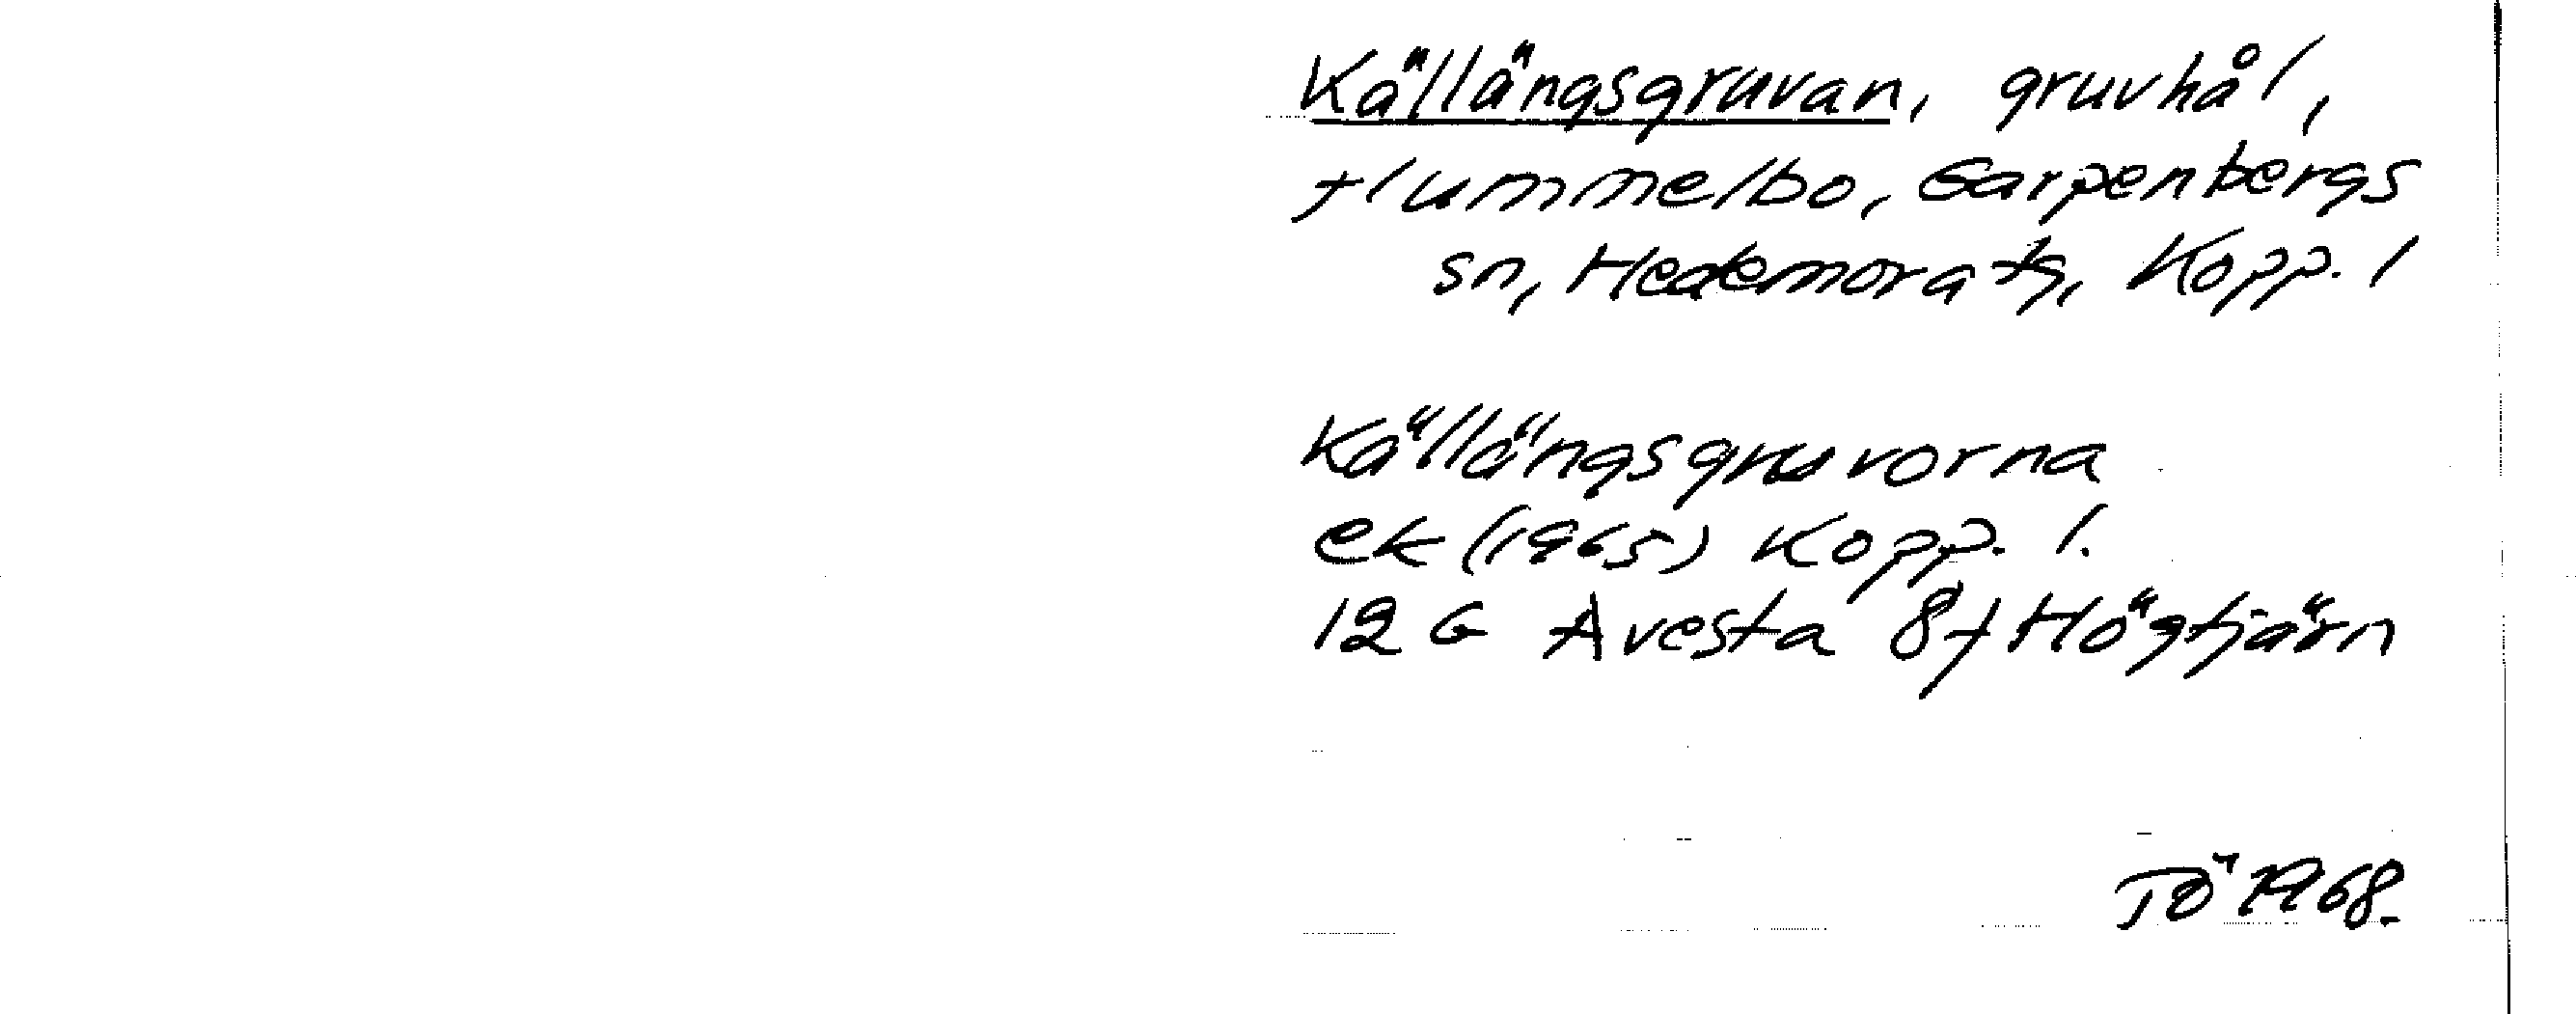 Källängsgruvan, gruvhål,
Hummelbo, Garpenbergs
sn, Hedemora tg, Kopp. l
Källängsgruvorna
ek (1965) Kopp. l.
12 G Avesta 8f Högtjärn
TÖ 1968.